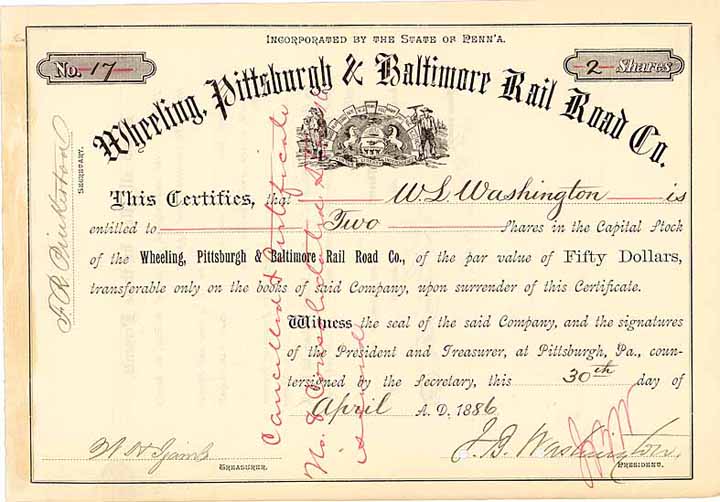 INCORPORATED BY THE STATE OF PENN'A.
No. 17
2 Shares
Wheeling, Pittsburgh & Baltimore Rail Road Co.
This Certifies, that W. L. Washington is
entitled to Two Shares in the Capital Stock
of the Wheeling, Pittsburgh & Baltimore Rail Road Co., of the par value of Fifty Dollars,
transferable only on the books of said Company, upon surrender of this Certificate.
Witness the seal of the said Company, and the signatures
of the President and Treasurer, at Pittsburgh, Pa., coun-
tersigned by the Secretary, this 30th day of
April A. D. 1886
J. B. Washington
TREASURER.
PRESIDENT.
J. R. Pinkerton
SECRETARY.
Cancelled Certificate
No. 8 Consolidated
issued